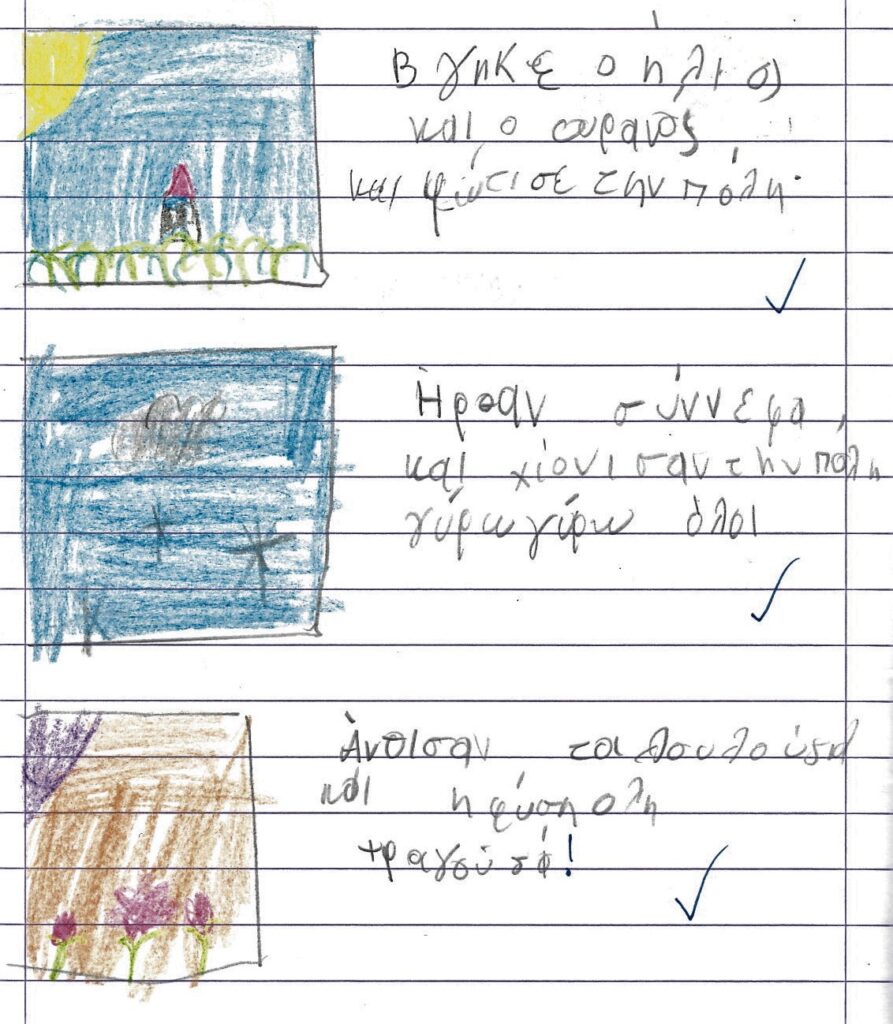 Βγηκε ο ήλιος
και ο ουρανός
και φώτισε την πόλη.
Ήρθαν σύννεφα,
και χίονισαν την πόλη
γύρω γύρω όλοι
Άνθισαν τα λουλούδια
και η φύση ολη
τραγουδά!